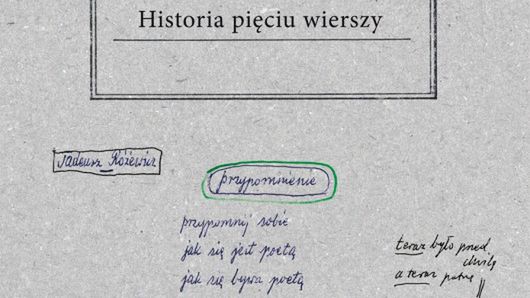 Historia pięciu wierszy
Tadeusz Różewicz
przypomnienie
przypomnij sobie
jak się jest poetą
jak się bywa poetą
teraz było przed
chwilą
a teraz patrzę